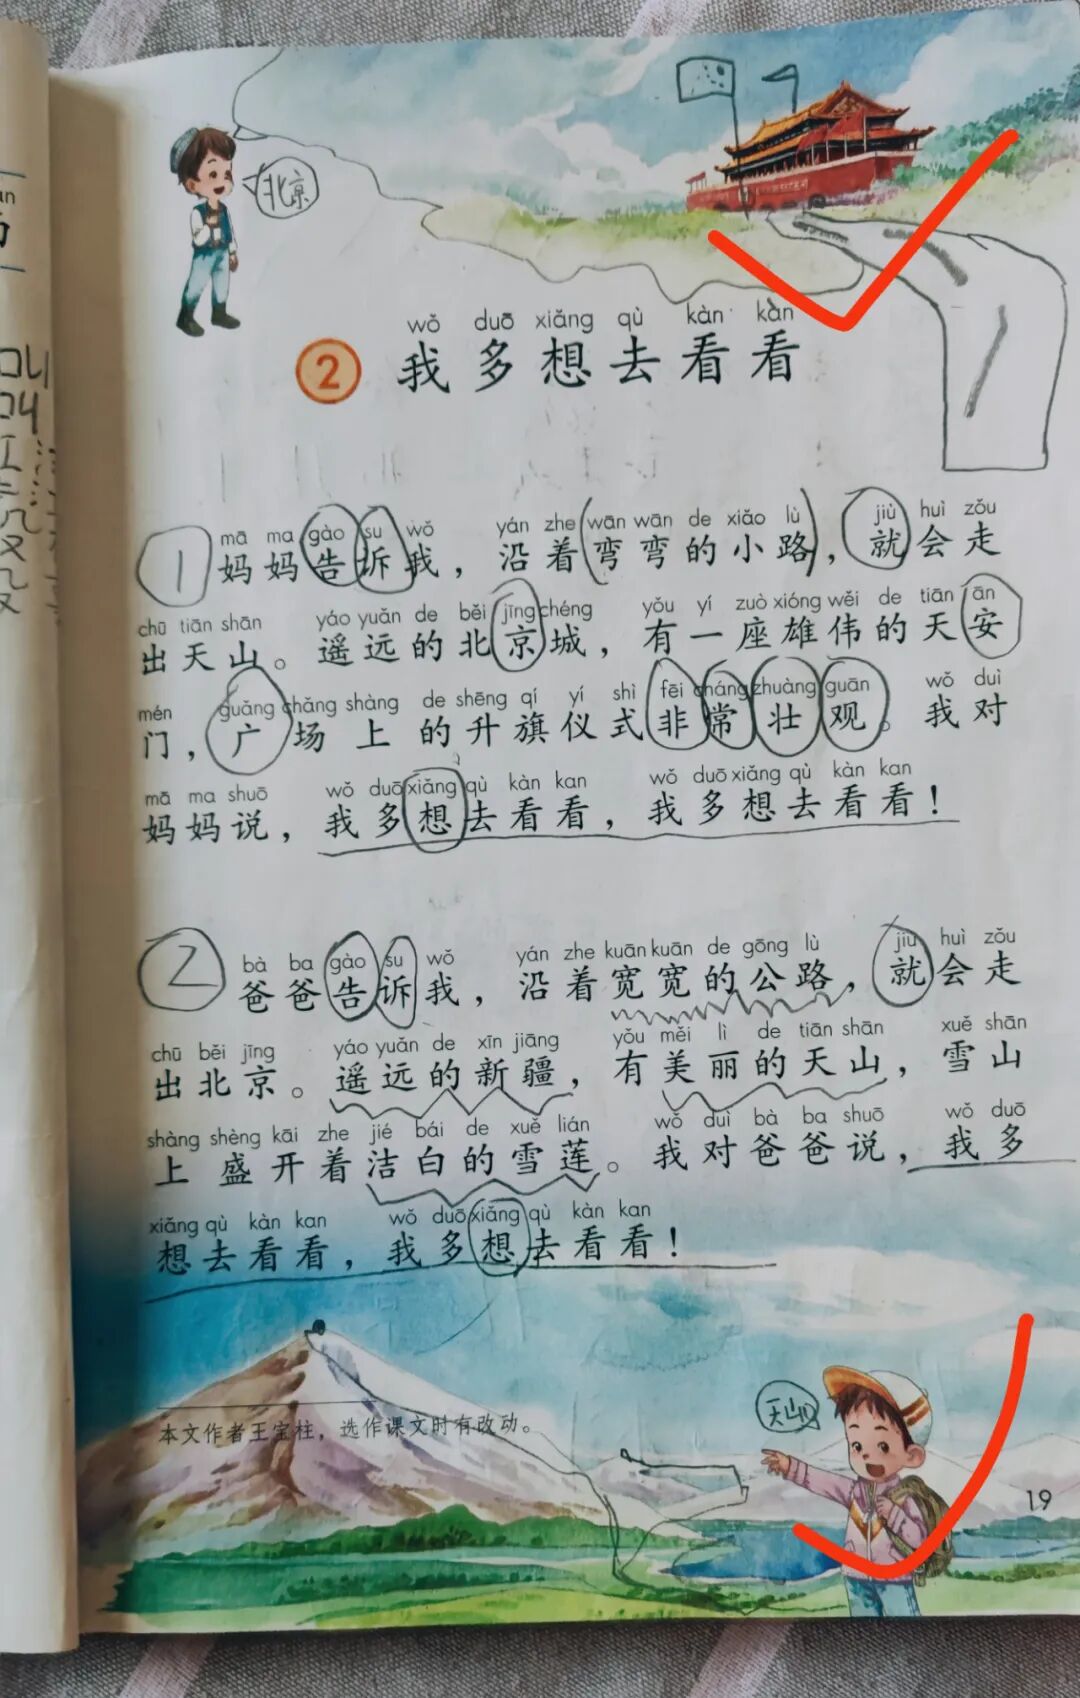 北京
wǒ duō xiǎng qù kàn kàn
2 我多想去看看
mā ma gào su wǒ yán zhe wān wān de xiǎo lù jiù huì zǒu
1 妈妈告诉我，沿着弯弯的小路，就会走
chū tiān shān yáo yuǎn de běi jīng chéng yǒu yí zuò xióng wěi de tiān ān
出天山。遥远的北京城，有一座雄伟的天安
mén guǎng chǎng shàng de shēng qí yí shì fēi cháng zhuàng guān wǒ duì
门，广场上的升旗仪式非常壮观。我对
mā ma shuō wǒ duō xiǎng qù kàn kan wǒ duō xiǎng qù kàn kan
妈妈说，我多想去看看，我多想去看看！
bà ba gào su wǒ yán zhe kuān kuān de gōng lù jiù huì zǒu
2 爸爸告诉我，沿着宽宽的公路，就会走
chū běi jīng yáo yuǎn de xīn jiāng yǒu měi lì de tiān shān xuě shān
出北京。遥远的新疆，有美丽的天山，雪山
shàng shèng kāi zhe jié bái de xuě lián wǒ duì bà ba shuō wǒ duō
上盛开着洁白的雪莲。我对爸爸说，我多
xiǎng qù kàn kan wǒ duō xiǎng qù kàn kan
想去看看，我多想去看看！
天山
本文作者王宝柱，选作课文时有改动。
19